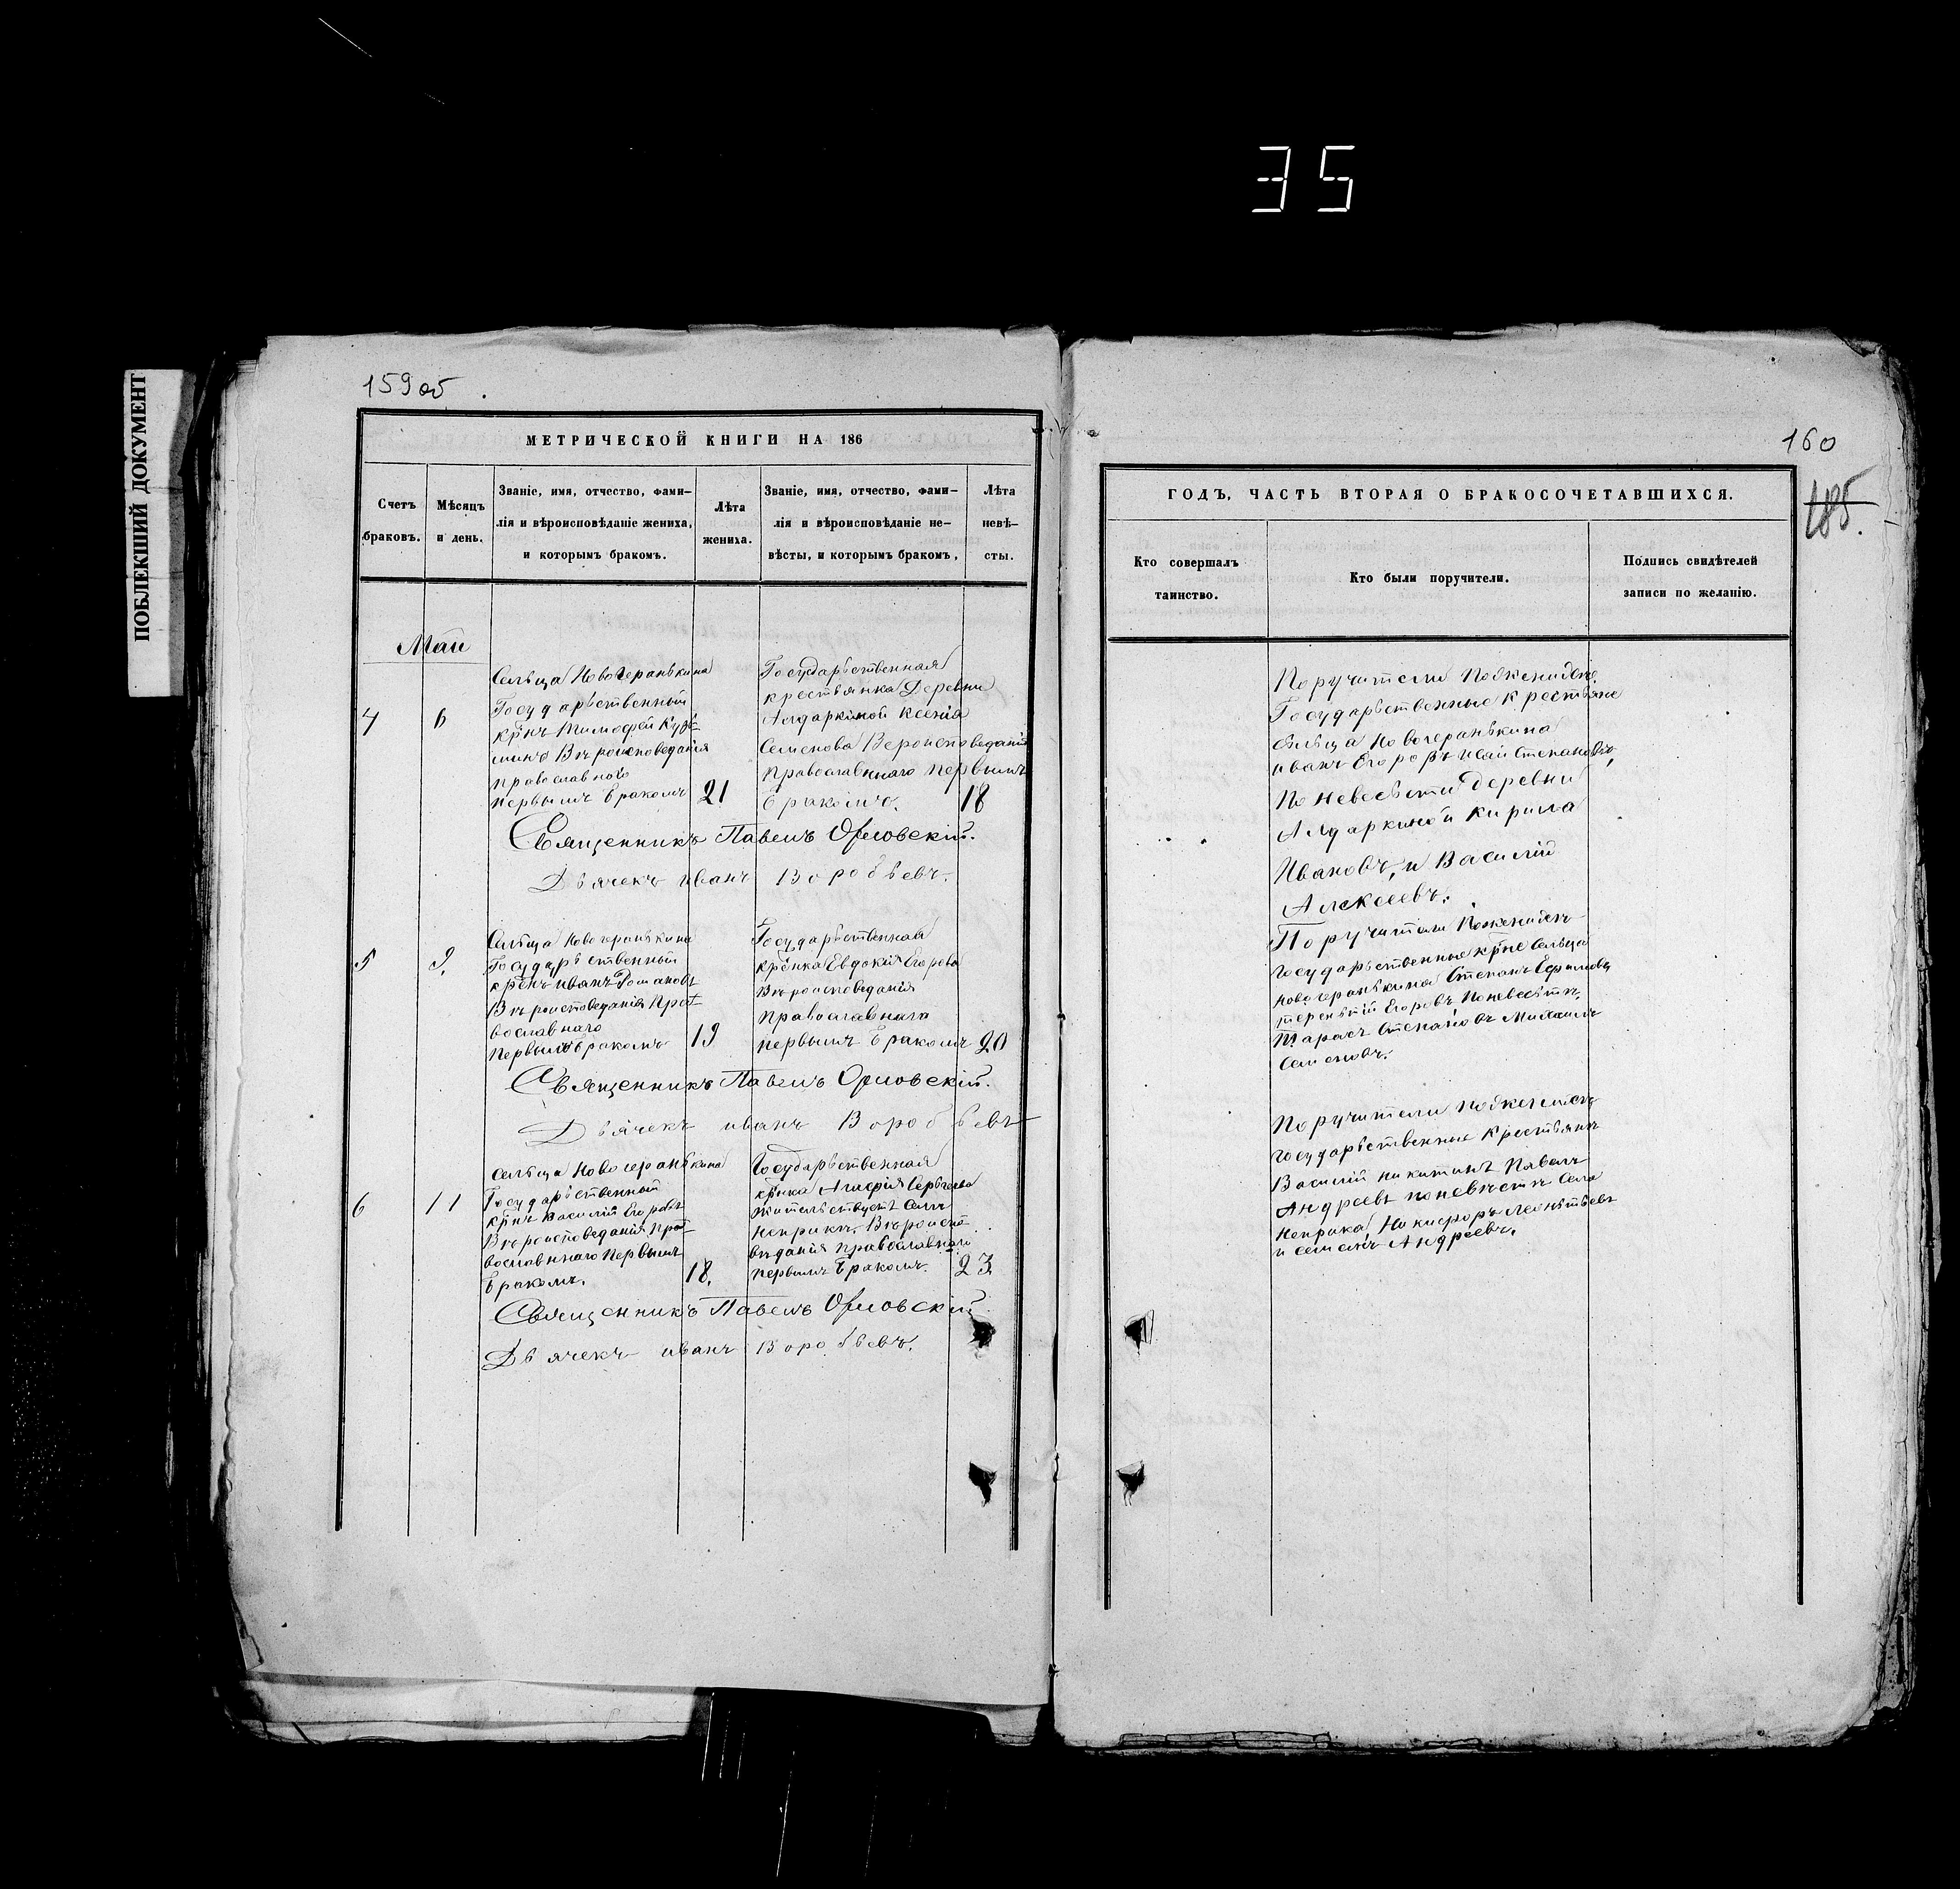 35
ПОБЛЕКШИЙ ДОКУМЕНТ
159 об
МЕТРИЧЕСКОЙ КНИГИ НА 186
Счетъ браковъ.
Мѣсяцъ и день.
Званіе, имя, отчество, фами-
лія и вѣроисповѣданіе жениха,
и которымъ бракомъ.
Лѣта
жениха.
Званіе, имя, отчество, фами-
лія и вѣроисповѣданіе не-
вѣсты, и которымъ бракомъ,
Лѣта
невѣ-
сты.
Май
4
6
Сельца Новогеранькина
Государьственный
крнъ Тимофей Кузь-
минъ Вѣроисповеданія
православного
первымъ бракомъ
21
Государьственная
крестьянка Деревни
Алдаркиной Ксенія
Семенова Вероисповеданія
Православннаго первымъ
бракомъ.
18
Священникъ Павелъ Орловскій.
Дьячекъ иванъ Воробьевъ.
5
9.
Сельца Новогеранькина
Государьственный
крнъ иванъ Романовъ
Вѣроисповеданія Прав
вославнаго
Первымъ бракомъ
19
Государьственная
крнка Евдокия Егорова
Вѣроисповеданія
Православнаго
первымъ бракомъ
20
Священникъ Павелъ Орловскій.
Дьячекъ иванъ Воробьевъ
6
11
сельца Новогеранькина
Государьственный
крнъ Василій Егоровъ
Вѣроисповеданія Пра
вославннаго Первымъ
бракомъ.
18.
Государьственная
крнка Агафія Сергѣева
жительствуетъ Селѣ
Неприкъ. Вѣроиспо
вѣданія православнаго
первымъ бракомъ.
23
Священникъ Павелъ Орловскій
Дьячекъ иванъ Воробьевъ.
160
185.
ГОДЪ, ЧАСТЬ ВТОРАЯ О БРАКОСОЧЕТАВШИХСЯ.
Кто совершалъ
таинство.
Кто были поручители.
Подпись свидѣтелей
записи по желанію.
Поручители
Государьственные крестьяне
сельца Новогеранькина
иванъ Егоровъ Исай Степановъ,
По невесьти деревни
Алдаркиной Кирила
Ивановъ, и Василій
Алексеевъ.
Поручители
государьственные крне Сельца
новогеранькина Степанъ Ефимовъ
терентій Егоровъ Поневесьтѣ,
Тарасъ Степановъ Михаилъ
Семеновъ.
Поручители
государьственные Крестьянъ
Василій Никитинъ Павелъ
Андреевъ поневѣстѣ села
Неприка Никифоръ Леоньтьевъ
и семенъ Андреевъ.